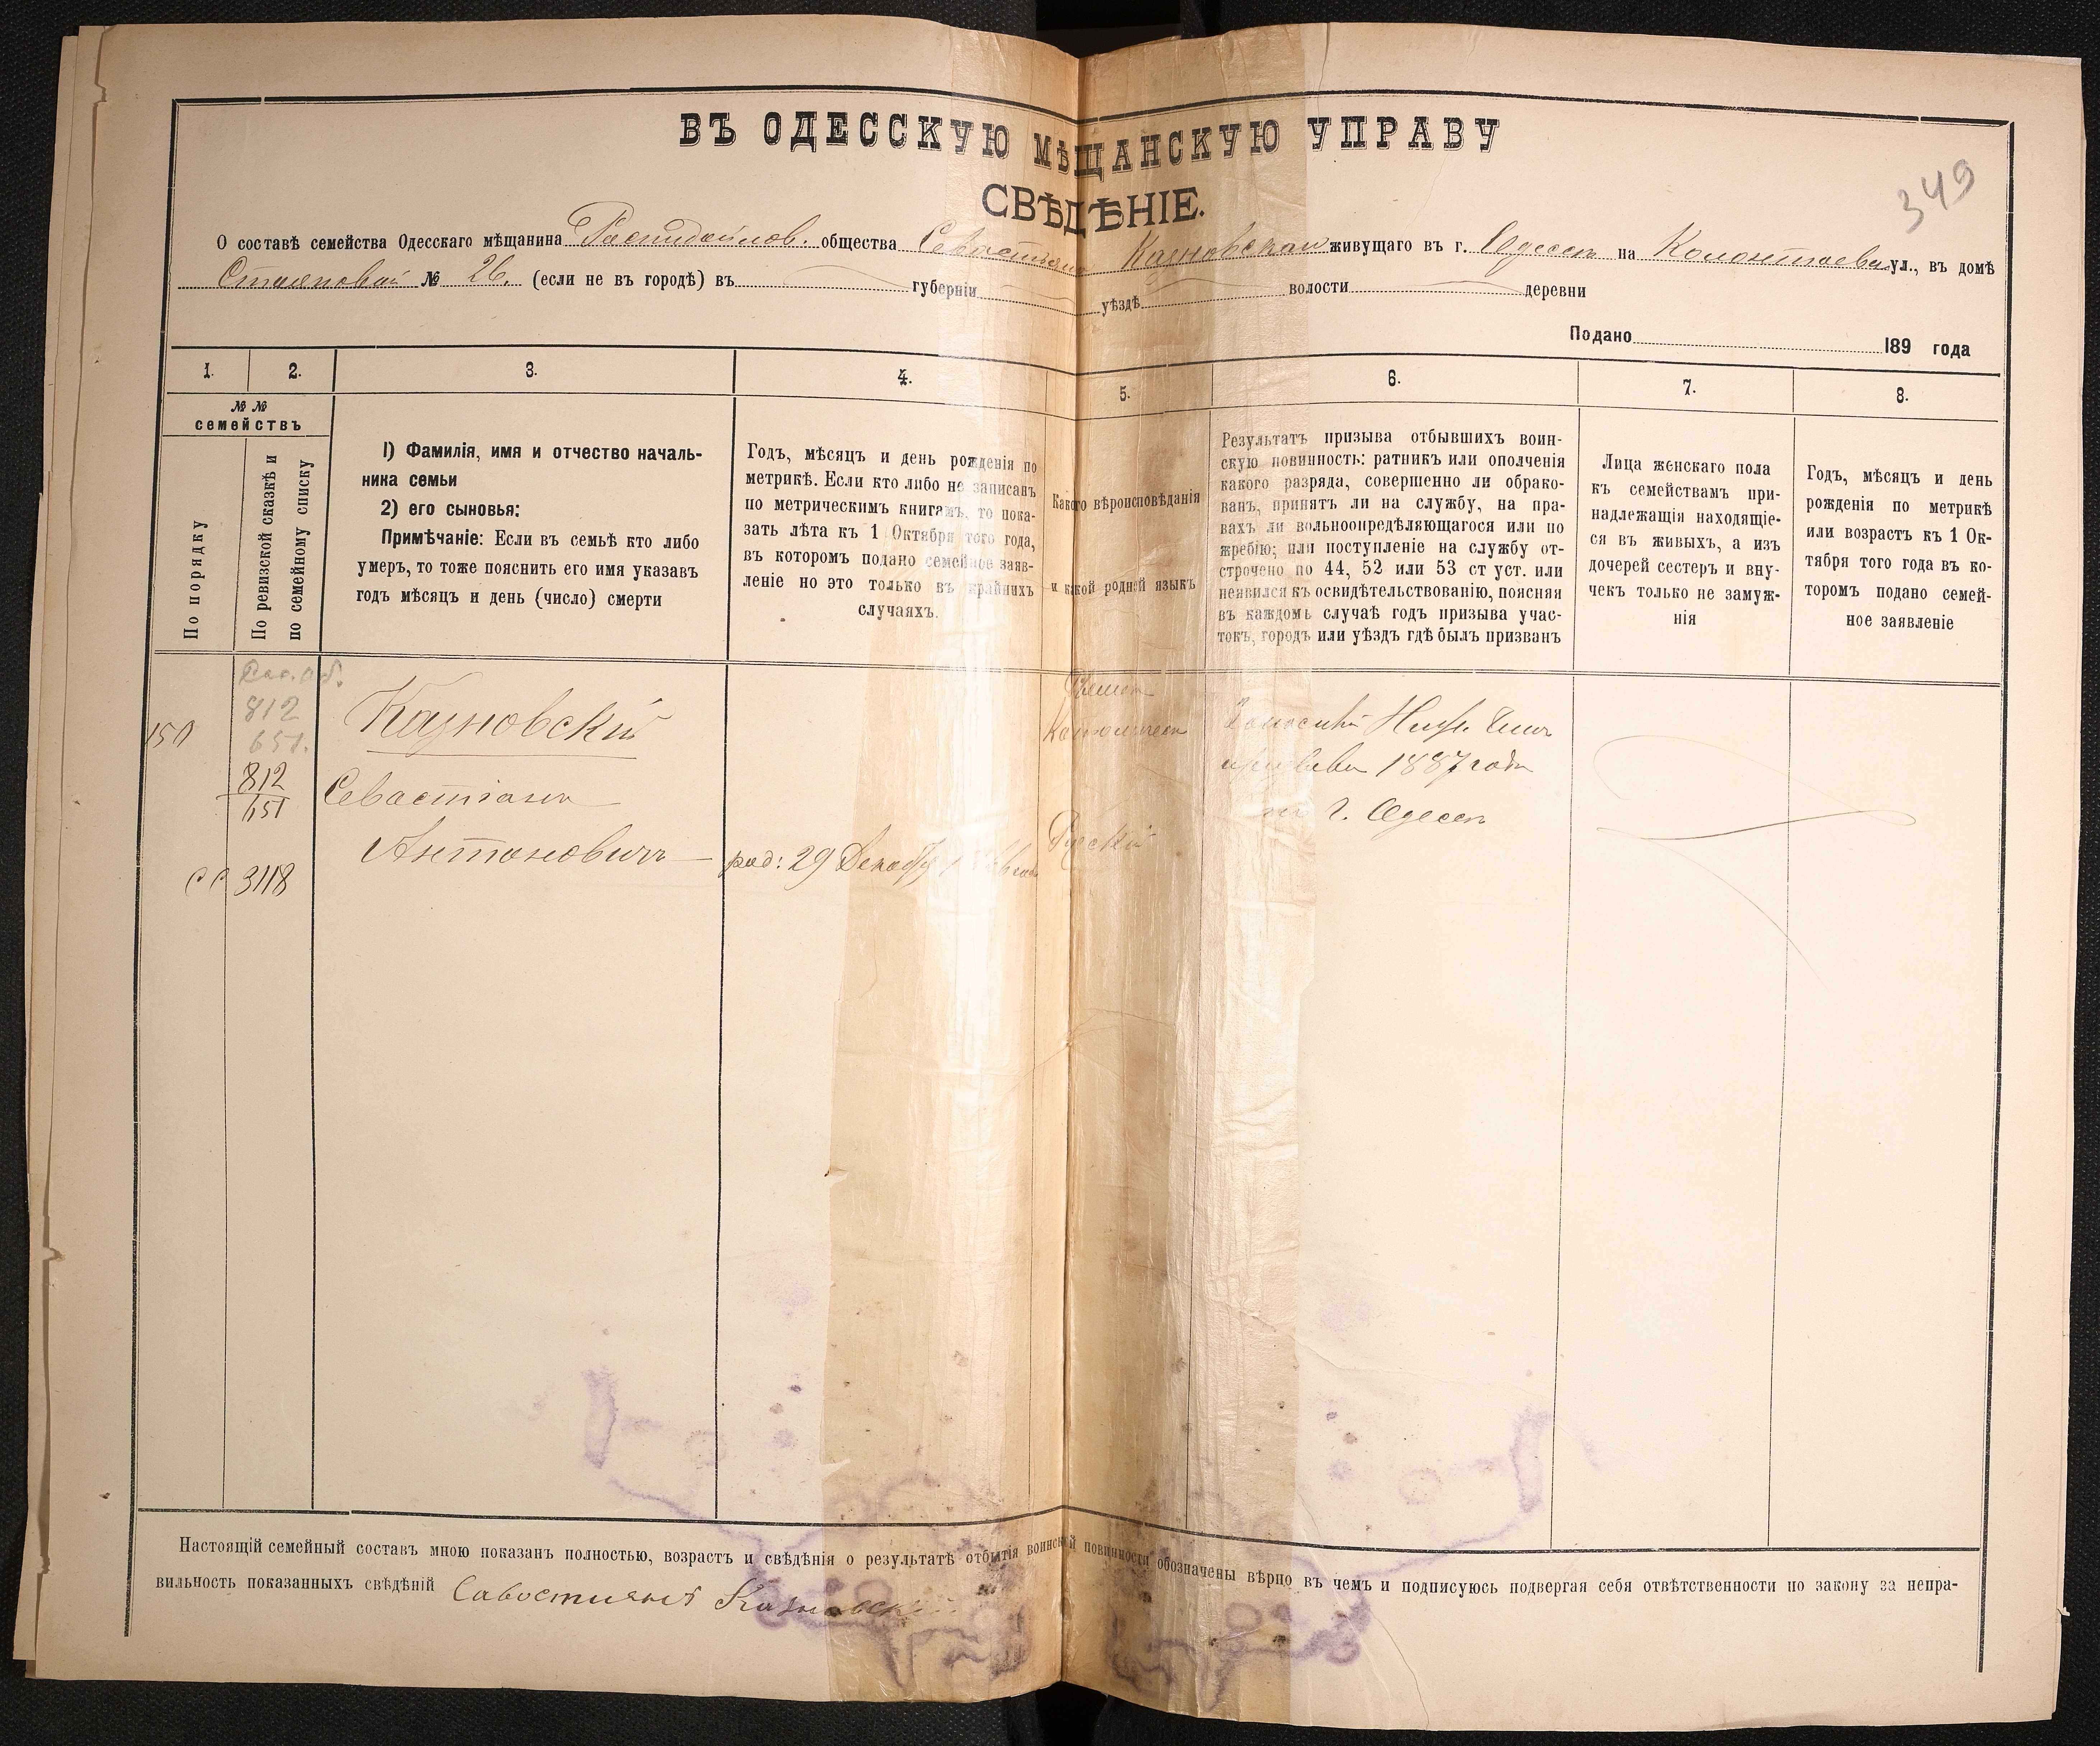 ВЪ ОДЕССКУЮ МѢЩАНСКУЮ УПРАВУ
СВѢДѢНІЕ.
349
О составѣ семейства Одесскаго мѣщанина общества Севастьяна Казновскаго живущаго въ г. Одессѣ на ул., въ домѣ
№ 26. (если не въ городѣ) въ губерніи уѣздѣ волости деревни
Подано 189 года
1. 2. 3. 4. 5. 6. 7. 8.
№ №
семействъ
По порядку
По ревизской сказкѣ и
по семейному списку
1) Фамилія, имя и отчество началь-
ника семьи
2) его сыновья:
Примѣчаніе: Если въ семьѣ кто либо
умеръ, то тоже пояснить его имя указавъ
годъ мѣсяцъ и день (число) смерти
Годъ, мѣсяцъ и день рожденія по
метрикѣ. Если кто либо не записанъ
по метрическимъ книгамъ, то пока-
зать лѣта къ 1 Октября того года,
въ которомъ подано семейное заяв-
леніе но это только въ крайнихъ
случаяхъ.
Какого вѣроисповѣданія
и какой родной языкъ
Результатъ призыва отбывшихъ воин-
скую повинность: ратникъ или ополченія
какого разряда, совершенно ли обрако-
ванъ, принятъ ли на службу, на пра-
вахъ ли вольноопредѣляющагося или по
жребію; или поступленіе на службу от-
строчено по 44, 52 или 53 ст уст. или
неявился къ освидѣтельствованію, поясняя
въ каждомъ случаѣ годъ призыва учас-
токъ, городъ или уѣздъ гдѣ былъ призванъ
Лица женскаго пола
къ семействамъ при-
надлежащія находящіе-
ся въ живыхъ, а изъ
дочерей сестеръ и вну-
чекъ только не замуж-
нія
Годъ, мѣсяцъ и день
рожденія по метрикѣ
или возрастъ къ 1 Ок-
тября того года въ ко-
торомъ подано семей-
ное заявленіе
812
651.
150
812
651
3118
Казновскій
Севастіанъ
Антоновичъ
род: 29 Декабр
Русскій
1887 года
г. Одессѣ
Настоящій семейный составъ мною показанъ полностью, возрастъ и свѣдѣнія о результатѣ отбытія воинской повинности обозначены вѣрно въ чемъ и подписуюсь подвергая себя отвѣтственности по закону за непра-
вильность показанныхъ свѣдѣній Савостиянъ Казновскій